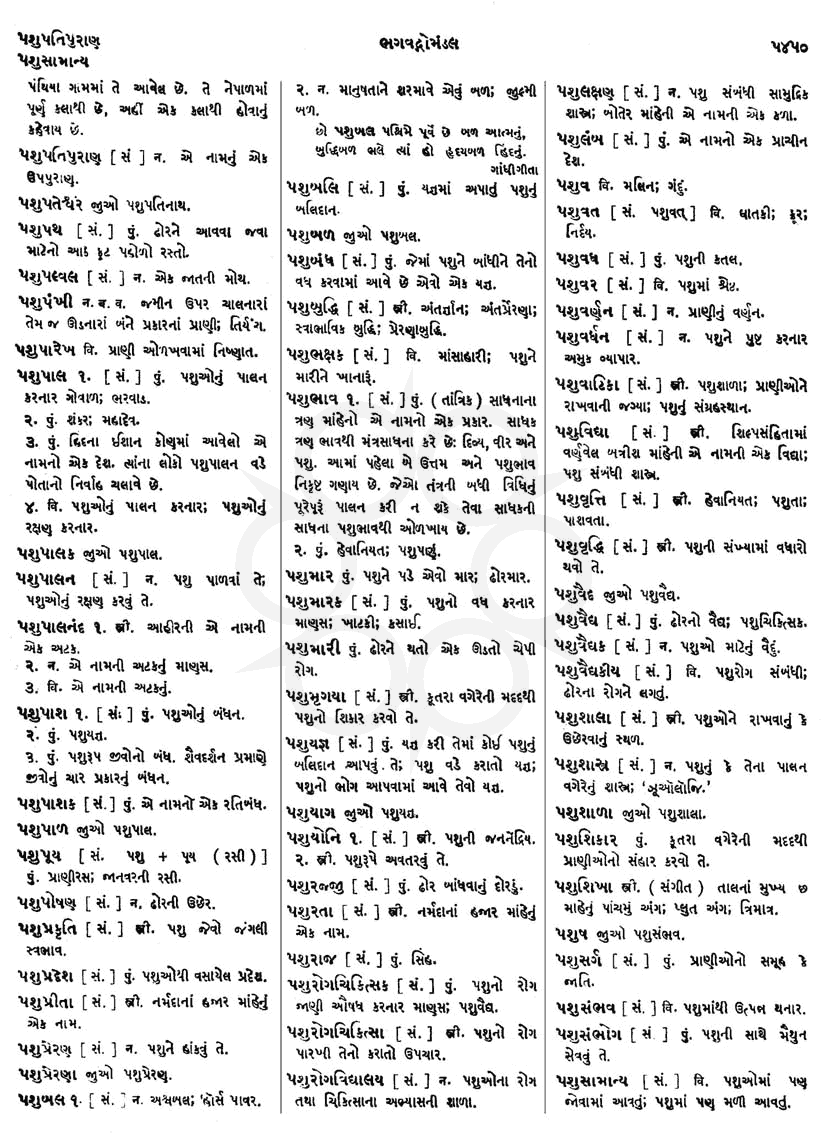 પશુપતિપુરાણ
ભગવદ્ગોમંડલ
૫૪૫૦
પશુસામાન્ય
પંથિયા ગામમાં તે આવેલ છે. તે નેપાળમાં
પૂર્ણ કલાથી છે, અહીં એક કલાથી હોવાનું
કહેવાય છે.
પશુપતિપુરાણ [ સં ] ન. એ નામનું એક
ઉપપુરાણ.
પશુપતેશ્વર જુઓ પશુપતિનાથ.
પશુપથ [ સં. ] પું. ઢોરને આવવા જવા
માટેનો આઠ ફૂટ પહોળો રસ્તો.
પશુપલ્વલ [ સં. ] ન. એક જાતની મોથ.
પશુપંખી ન. બ. વ. જમીન ઉપર ચાલનારાં
તેમ જ ઊડનારાં બંને પ્રકારનાં પ્રાણી; તિર્યંગ.
પશુપારેખ વિ. પ્રાણી ઓળખવામાં નિષ્ણાત.
પશુપાલ ૧. [ સં. ] પું. પશુઓનું પાલન
કરનાર ગોવાળ; ભરવાડ.
૨. પું. શંકર; મહાદેવ.
૩. પું. હિંદના ઈશાન કોણમાં આવેલો એ
નામનો એક દેશ. ત્યાંના લોકો પશુપાલન વડે
પોતાનો નિર્વાહ ચલાવે છે.
૪. વિ. પશુઓનું પાલન કરનાર; પશુઓનું
રક્ષણ કરનાર.
પશુપાલક જુઓ પશુપાલ.
પશુપાલન [ સં. ] ન. પશુ પાળવાં તે;
પશુઓનું રક્ષણ કરવું તે.
પશુપાલનંદ ૧. સ્ત્રી. આહીરની એ નામની
એક અટક.
૨. ન. એ નામની અટકનું માણસ.
૩. વિ. એ નામની અટકનું.
પશુપાશ ૧. [ સં. ] પું. પશુઓનું બંધન.
૨. પું. પશુયજ્ઞ.
૩. પું. પશુરૂપ જીવોનો બંધ. શૈવદર્શન પ્રમાણે
જીવોનું ચાર પ્રકારનું બંધન.
પશુપાશક [ સં. ] પું. એ નામનો એક રતિબંધ.
પશુપાળ જુઓ પશુપાલ.
પશુપૂય [ સં. પશુ + પૂય ( રસી ) ]
પું. પ્રાણીરસ; જાનવરની રસી.
પશુપોષણ [ સં. ] ન. ઢોરની ઉછેર.
પશુપ્રકૃતિ [ સં. ] સ્ત્રી. પશુ જેવો જંગલી
સ્વભાવ.
પશુપ્રદેશ [ સં. ] પું. પશુઓથી વસાયેલ પ્રદેશ.
પશુપ્રીતા [ સં. ] સ્ત્રી. નર્મદાનાં હજાર માંહેનું
એક નામ.
પશુપ્રેરણ [ સં. ] ન. પશુને હાંકવું તે.
પશુપ્રેરણા જુઓ પશુપ્રેરણ.
પશુબલ ૧. [ સં. ] ન. અશ્વબલ; ‘હૉર્સ પાવર.
૨. ન. માનુષતાને શરમાવે એવું બળ; જુલ્મી
બળ.
છો પશુબલ પશ્ચિમે પૂર્વે છે બળ આત્મનું,
બુદ્ધિબળ ભલે ત્યાં હો હૃદયબળ હિંદનું.
ગાંધીગીતા
પશુબલિ [ સં. ] પું. યજ્ઞમાં અપાતું પશુનું
બલિદાન.
પશુબળ જુઓ પશુબલ.
પશુબંધ [ સં. ] પું. જેમાં પશુને બાંધીને તેનો
વધ કરવામાં આવે છે એવો એક યજ્ઞ.
પશુબુદ્ધિ [ સં. ] સ્ત્રી. અંતર્જ્ઞાન; અંતર્પ્રેરણા;
સ્વાભાવિક બુદ્ધિ; પ્રેરણાબુદ્ધિ.
પશુભક્ષક [ સં. ] વિ. માંસાહારી; પશુને
મારીને ખાનારૂં.
પશુભાવ ૧. [ સં. ] પું. ( તાંત્રિક ) સાધનાના
ત્રણ માંહેનો એ નામનો એક પ્રકાર. સાધક
ત્રણ ભાવથી મંત્રસાધના કરે છેઃ દિવ્ય, વીર અને
પશુ. આમાં પહેલા બે ઉત્તમ અને પશુભાવ
નિકૃષ્ટ ગણાય છે. જેઓ તંત્રની બધી વિધિનું
પૂરેપૂરૂં પાલન કરી ન શકે તેવા સાધકની
સાધના પશુભાવથી ઓળખાય છે.
૨. પું. હેવાનિયત; પશુપણું.
પશુમાર પું. પશુને પડે એવો માર; ઢોરમાર.
પશુમારક [ સં. ] પું. પશુનો વધ કરનાર
માણસ; ખાટકી; કસાઈ.
પશુમારી પું. ઢોરને થતો એક ઊડતો ચેપી
રોગ.
પશુમૃગયા [ સં. ] સ્ત્રી. કૂતરા વગેરેની મદદથી
પશુનો શિકાર કરવો તે.
પશુયજ્ઞ [ સં. ] પું. યજ્ઞ કરી તેમાં કોઈ પશુનું
બલિદાન આપવું તે; પશુ વડે કરાતો યજ્ઞ;
પશુનો ભોગ આપવામાં આવે તેવો યજ્ઞ.
પશુયાગ જુઓ પશુયજ્ઞ.
પશુયોનિ ૧. [ સં. ] સ્ત્રી. પશુની જનનેંદ્રિય.
૨. સ્ત્રી. પશુરૂપે અવતરવું તે.
પશુરજ્જુ [ સં. ] પું. ઢોર બાંધવાનું દોરડું.
પશુરતા [ સં. ] સ્ત્રી. નર્મદાનાં હજાર માંહેનું
એક નામ.
પશુરાજ [ સં. ] પું. સિંહ.
પશુરોગચિકિત્સક [ સં. ] પું. પશુનો રોગ
જાણી ઔષધ કરનાર માણસ; પશુવૈદ્ય.
પશુરોગચિકિત્સા [ સં. ] સ્ત્રી. પશુનો રોગ
પારખી તેનો કરાતો ઉપચાર.
પશુરોગવિદ્યાલય [ સં. ] ન. પશુઓના રોગ
તથા ચિકિત્સાના અભ્યાસની શાળા.
પશુલક્ષણ [ સં. ] ન. પશુ સંબંધી સામુદ્રિક
શાસ્ત્ર; બોતેર માંહેની એ નામની એક કળા.
પશુલંબ [ સં. ] પું. એ નામનો એક પ્રાચીન
દેશ.
પશુવ વિ. મલિન; ગંદું.
પશુવત [ સં. પશુવત્ ] વિ. ઘાતકી; ક્રૂર;
નિર્દય.
પશુવધ [ સં. ] પું. પશુની કતલ.
પશુવર [ સં. ] વિ. પશુમાં શ્રેષ્ઠ.
પશુવર્ણન [ સં. ] ન. પ્રાણીનું વર્ણન.
પશુવર્ધન [ સં. ] ન. પશુને પુષ્ટ કરનાર
અમુક વ્યાપાર.
પશુવાટિકા [ સં. ] સ્ત્રી. પશુશાળા; પ્રાણીઓને
રાખવાની જગ્યા; પશુનું સંગ્રહસ્થાન.
પશુવિદ્યા [ સં. ] સ્ત્રી. શિલ્પસંહિતામાં
વર્ણવેલ બત્રીશ માંહેની એ નામની એક વિદ્યા;
પશુ સંબંધી શાસ્ત્ર.
પશુવૃત્તિ [ સં. ] સ્ત્રી. હેવાનિયત; પશુતા;
પાશવતા.
પશુવૃદ્ધિ [ સં. ] સ્ત્રી. પશુની સંખ્યામાં વધારો
થવો તે.
પશુવૈદ જુઓ પશુવૈદ્ય.
પશુવૈદ્ય [ સં. ] પું. ઢોરનો વૈદ્ય; પશુચિકિત્સક.
પશુવૈદ્યક [ સં. ] ન. પશુઓ માટેનું વૈદું.
પશુવૈદ્યકીય [ સં. ] વિ. પશુરોગ સંબંધી;
ઢોરના રોગને લગતું.
પશુશાલા [ સં. ] સ્ત્રી. પશુઓને રાખવાનું કે
ઉછેરવાનું સ્થળ.
પશુશાસ્ત્ર [ સં. ] ન. પશુનું કે તેના પાલન
વગેરેનું શાસ્ત્ર; ‘ઝૂઑલોજિ.’
પશુશાળા જુઓ પશુશાલા.
પશુશિકાર પું. કૂતરા વગેરેની મદદથી
પ્રાણીઓનો સંહાર કરવો તે.
પશુશિખા સ્ત્રી. ( સંગીત ) તાલનાં મુખ્ય છ
માહેનું પાંચમું અંગ; પ્લુત અંગ; ત્રિમાત્ર.
પશુષ જુઓ પશુસંભવ.
પશુસર્ગ [ સં. ] પું. પ્રાણીઓનો સમૂહ કે
જાતિ.
પશુસંભવ [ સં. ] વિ. પશુમાંથી ઉત્પન્ન થનાર.
પશુસંભોગ [ સં. ] પું. પશુની સાથે મૈથુન
સેવવું તે.
પશુસામાન્ય [ સં. ] વિ. પશુઓમાં પણ
જોવામાં આવતું; પશુમાં પણ મળી આવતું.